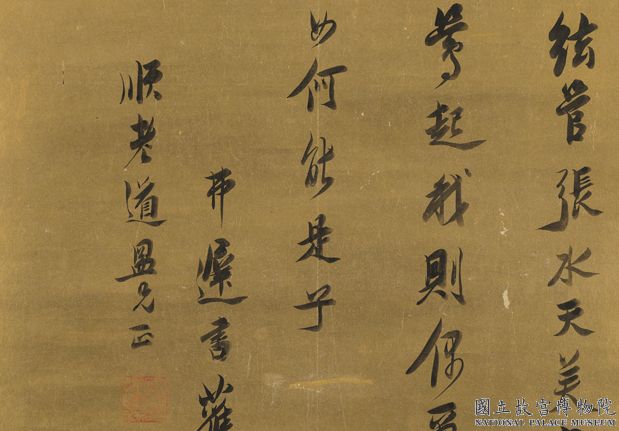 絃管張水天美
起我則偶
如何能是子
弟遲書
順老道盟兄正
國立故宮博物院
NATIONAL PALACE MUSEUM